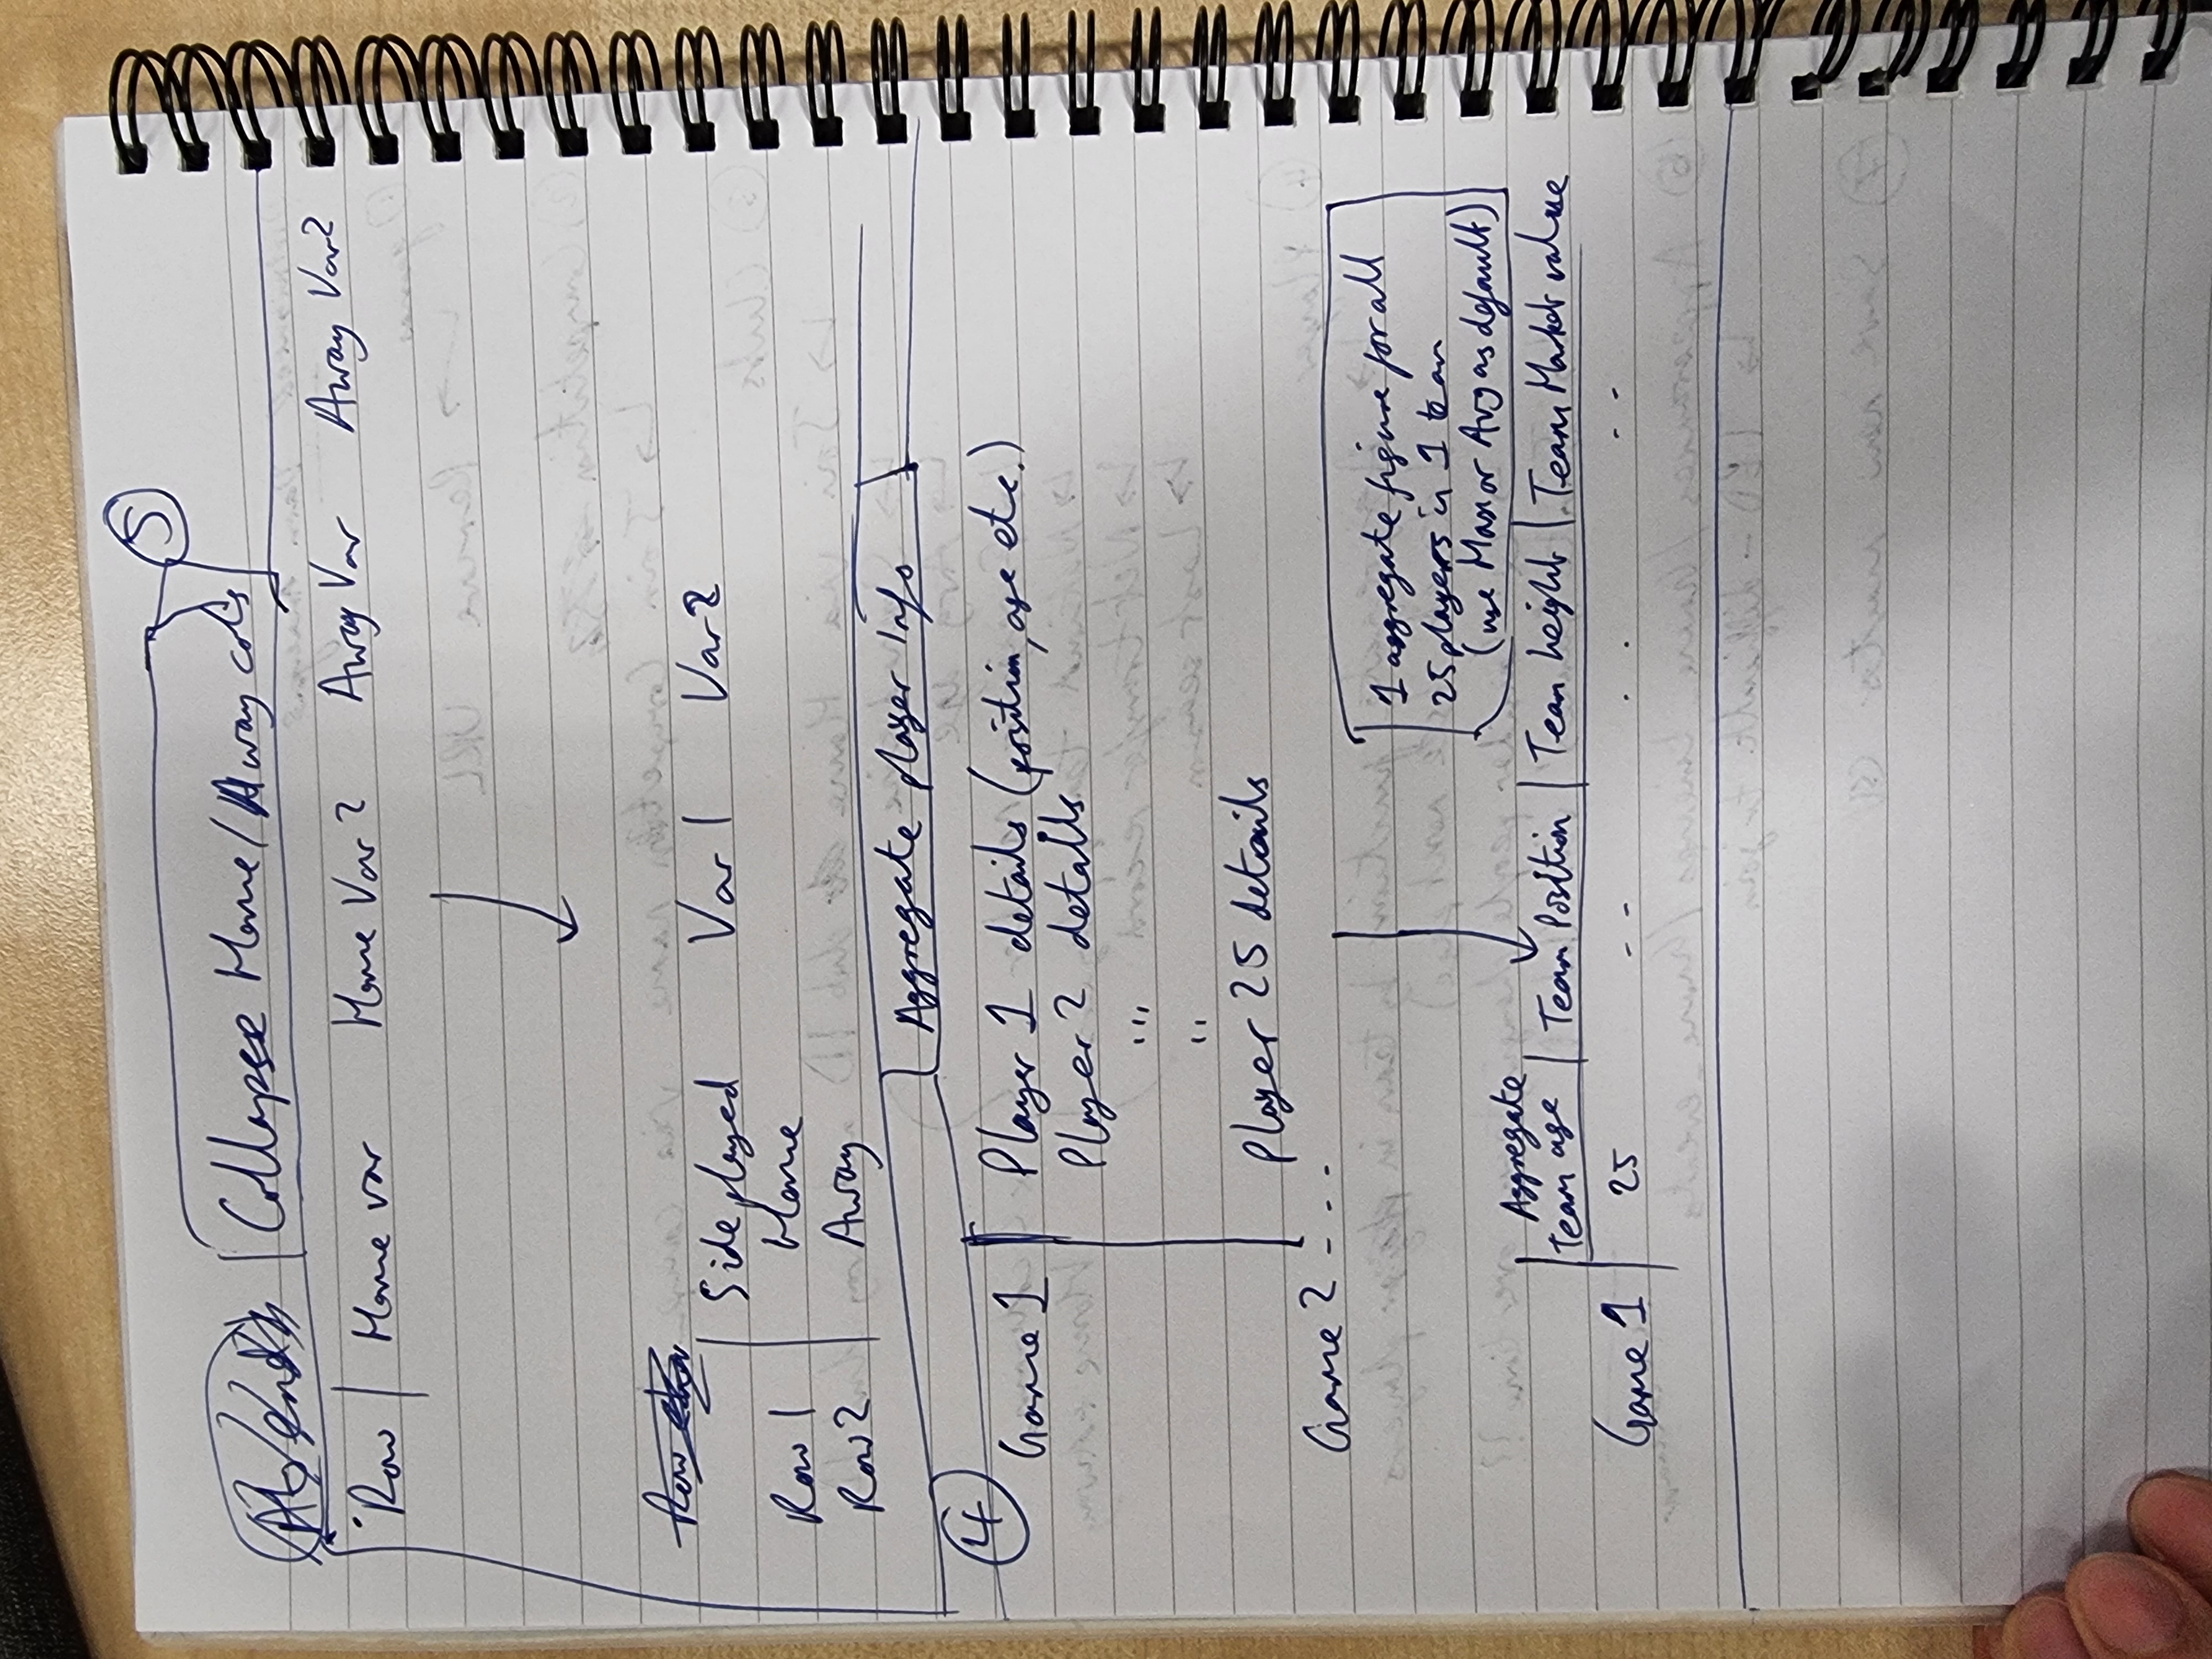 Collapse Home/Away cols
5
Row | Home var Home Var 2 Away Var Away Var 2
Side played Var 1 Var 2
Row 1 Home
Row 2 Away
Aggregate player info
4
Game 1 Player 1 details (position, age etc.)
Player 2 details
Player 25 details
Game 2 - - -
1 aggregate figure for all
25 players in 1 team
(use Max or Avg as default)
Aggregate
Team age | Team Position | Team height | Team Market value
Game 1 25 - - . . . .